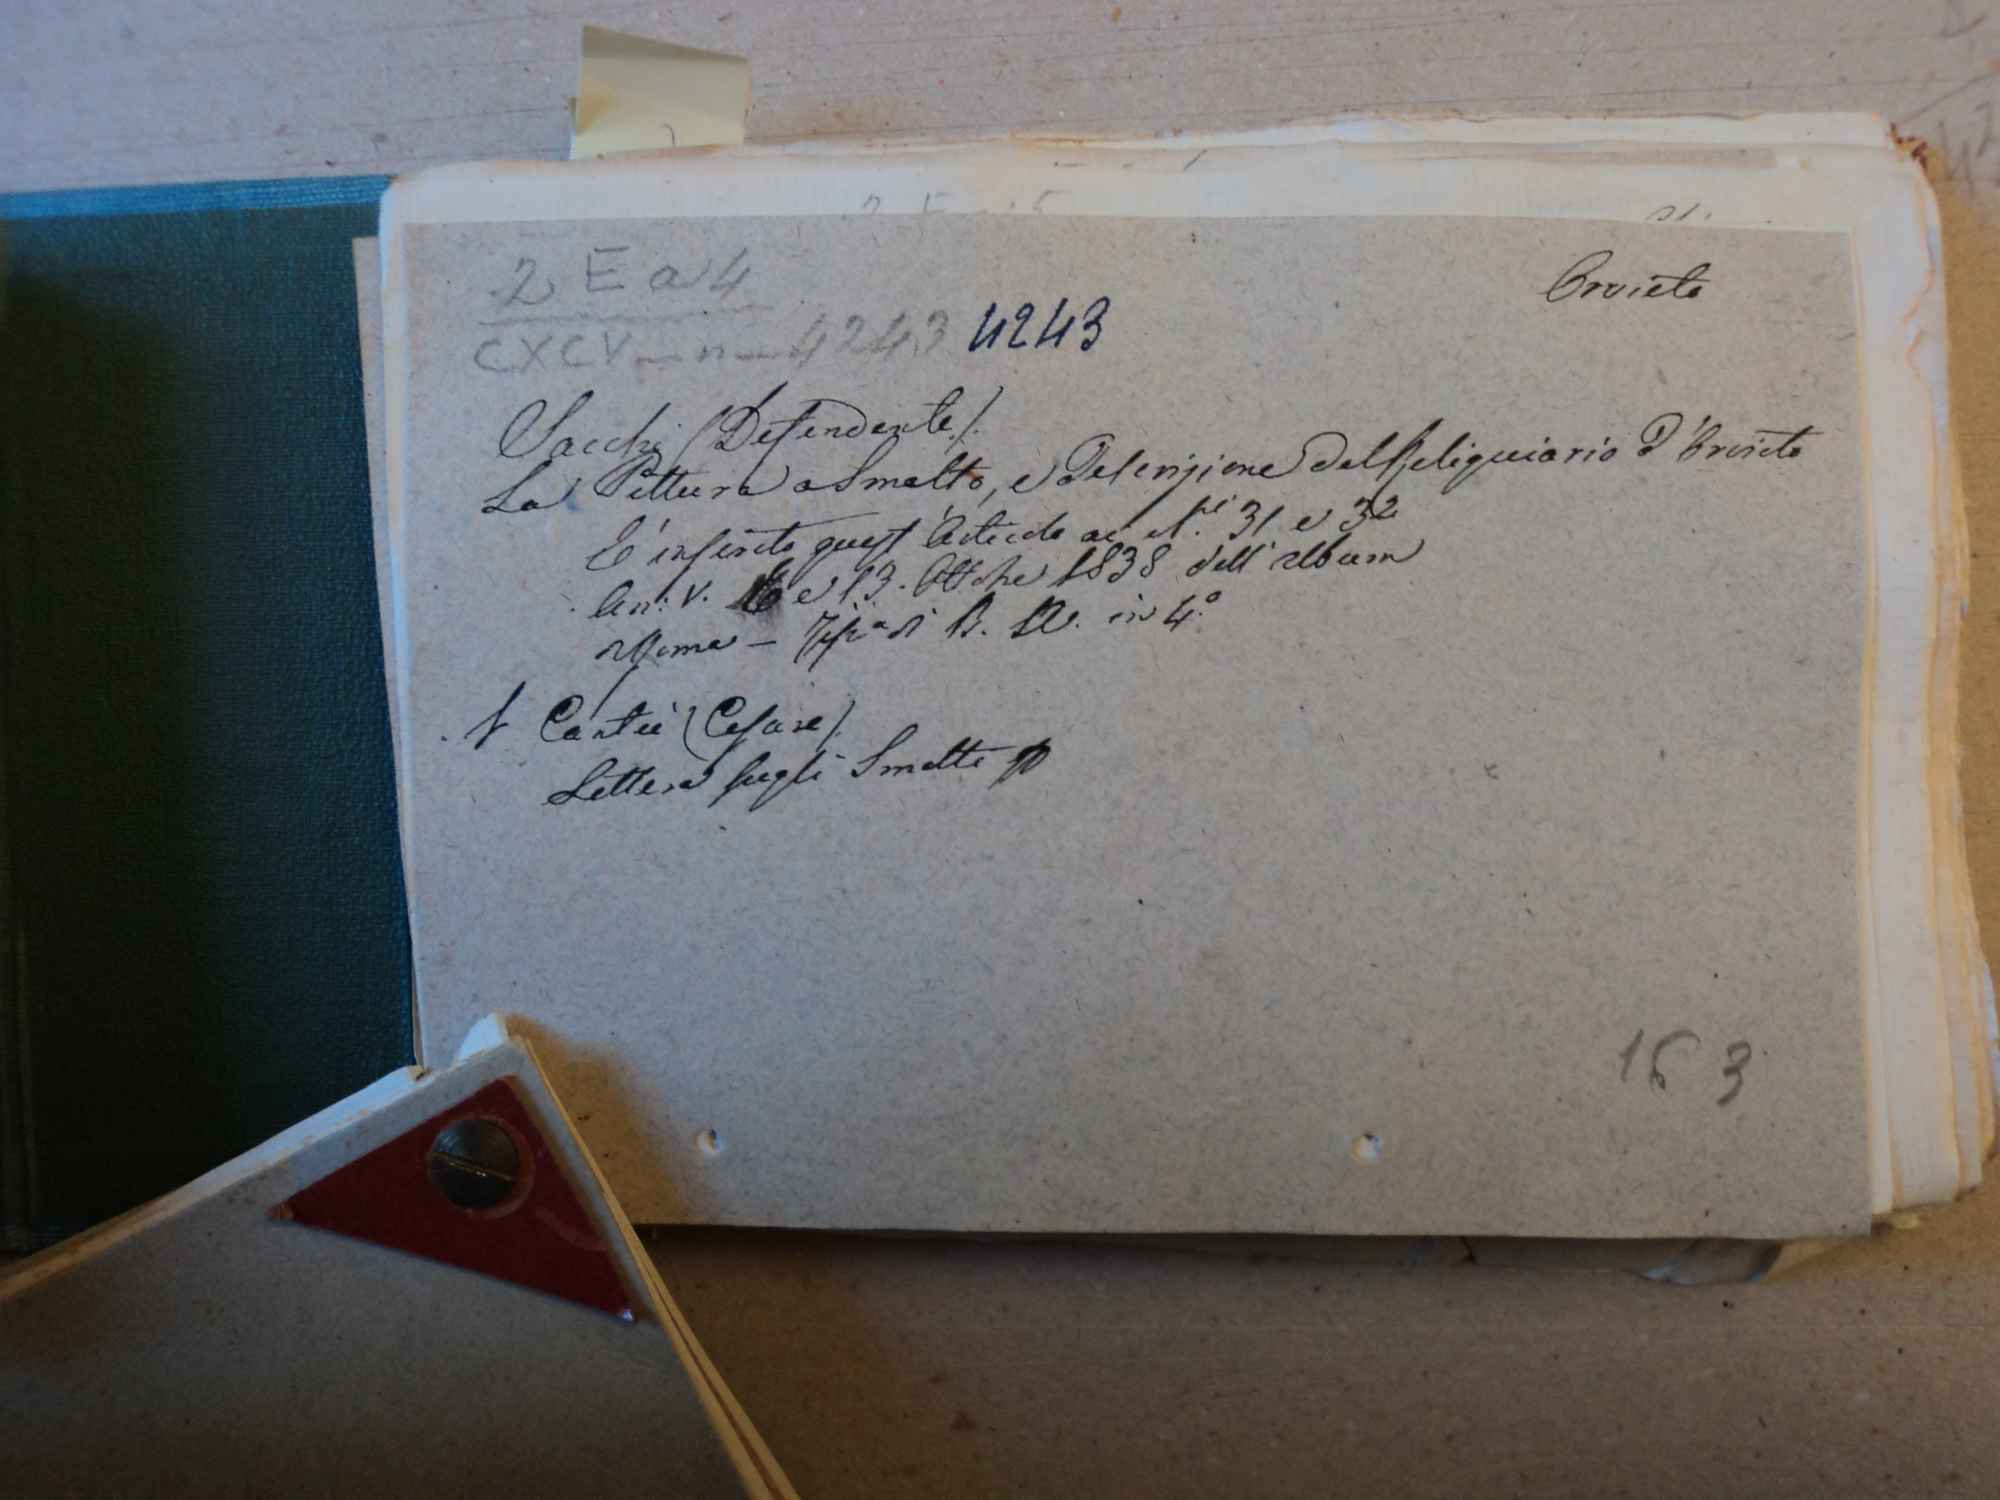 2 E a 4
Orvieto
CXCV — n — 4243 4243
Sacchi (Defendente).
La Pittura a Smalto, e Descrizione del Reliquiario d'Orvieto
È inserito quest'Articolo ai N.ri 31 e 32
An: V. 6 e 13. Ottobre 1838 dell'Album
Roma — Tip.a di B. A. in 4.°
Cantù (Cesare).
Lettera sugli Smalti
163